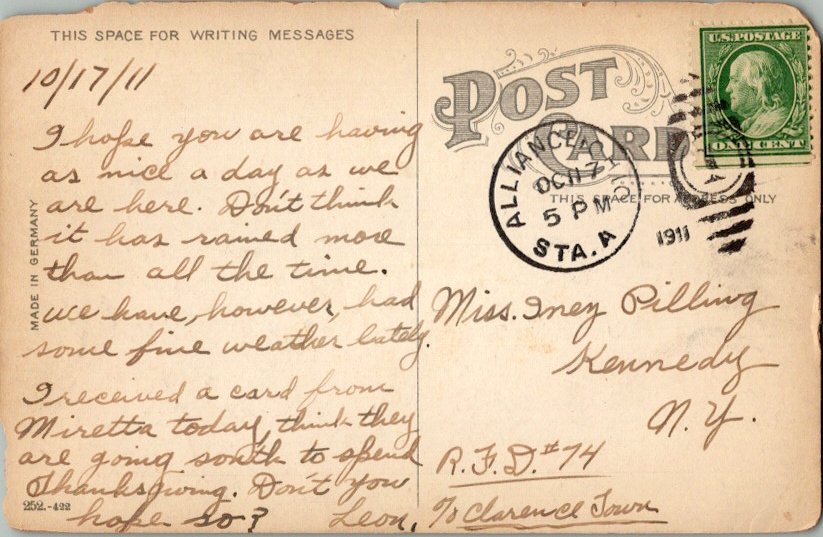 THIS SPACE FOR WRITING MESSAGES
10/17/11
I hope you are having
as nice a day as we
are here. Don't think
it has rained more
than all the time.
We have, however, had
some fine weather lately.
I received a card from
Miretta today, think they
are going south to spend
Thanksgiving. Don't you
hope so? Leon.
MADE IN GERMANY
252.-422
POST CARD
THIS SPACE FOR ADDRESS ONLY
U.S. POSTAGE
ONE CENT
ALLIANCE, OHIO
OCT 17
5 PM
STA. A
1911
Miss. Inez Pilling
Kennedy
N.Y.
R.F.D. #74
℅ Clarence Town